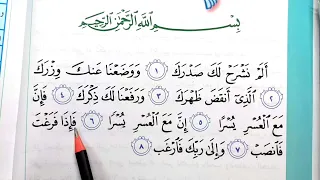 بِسْمِ ٱللَّهِ ٱلرَّحْمَٰنِ ٱلرَّحِيمِ
أَلَمْ نَشْرَحْ لَكَ صَدْرَكَ ١ وَوَضَعْنَا عَنكَ وِزْرَكَ
٢ ٱلَّذِىٓ أَنقَضَ ظَهْرَكَ ٣ وَرَفَعْنَا لَكَ ذِكْرَكَ ٤ فَإِنَّ
مَعَ ٱلْعُسْرِ يُسْرًا ٥ إِنَّ مَعَ ٱلْعُسْرِ يُسْرًا ٦ فَإِذَا فَرَغْتَ
فَٱنصَبْ ٧ وَإِلَىٰ رَبِّكَ فَٱرْغَب ٨